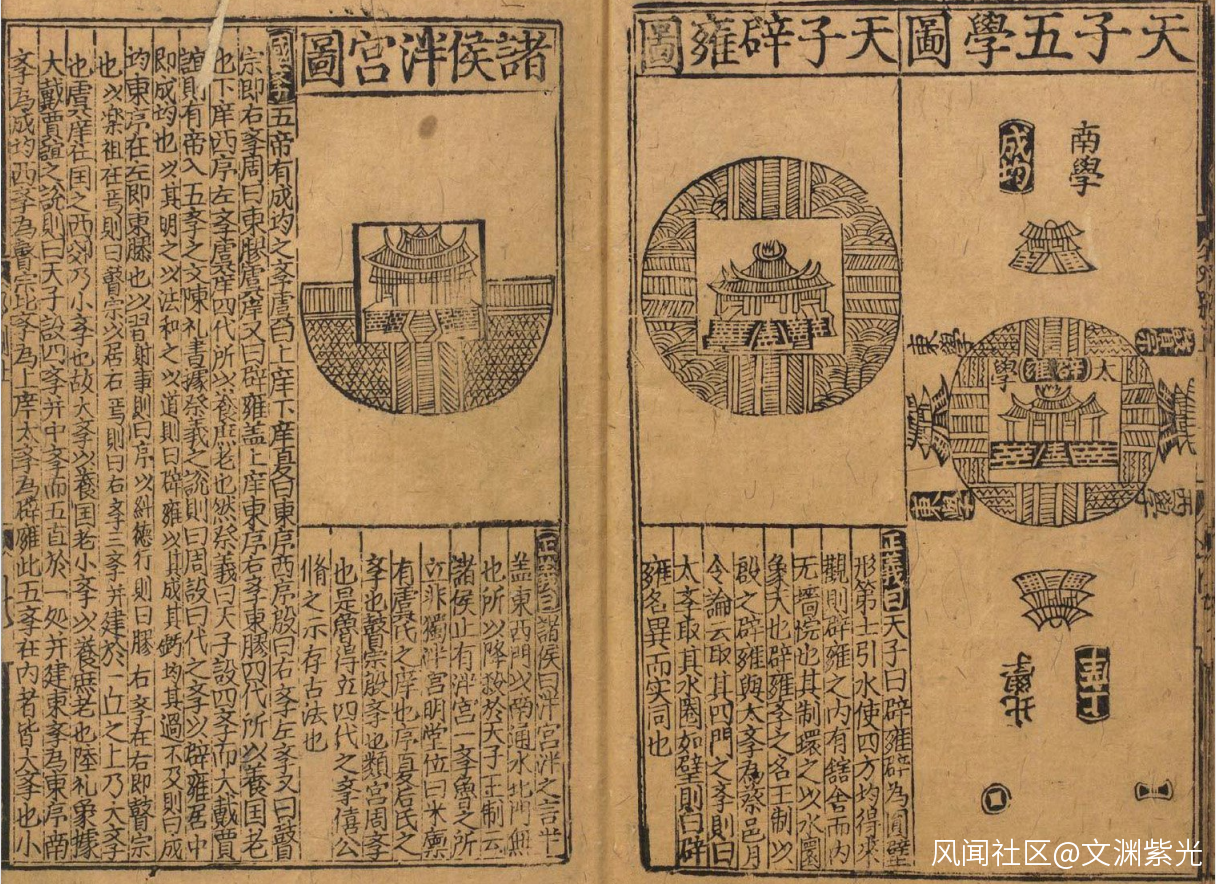 天子五學圖
南學
成均
東學
瞽宗
太辟雍學
西學
東學
北學
上庠
天子辟雍圖
正義曰天子曰辟雍辟為圓璧
形第士引水使四方均得來
觀則辟雍之内有舘舍而内
无牆院也其制環之以水圜
象天也辟雍斈之名王制以
殷之辟雍與太斈為蔡邕月
令論云取其四門之斈則曰
太斈取其水圈如璧則曰辟
雍名異而实同也
諸侯泮宮圖
正義曰諸侯曰泮宮泮之言半
盖東西門以南通水北門無
也所以降殺於天子王制云
諸侯止有泮宮一斈魯之所
立非獨泮宮明堂位曰米廪
有虞氏之庠也序夏后氏之
斈也瞽宗殷斈也類宮周斈
也是魯得立四代之斈僖公
脩之示存古法也
五帝有成均之斈虞曰上庠下庠夏曰東序西序殷曰右斈左斈又曰瞽
宗即右斈周曰東膠虞庠又曰辟雍盖上庠東序右斈東膠四代所以養国老
也下庠西序左斈虞庠四代所以養庶老也然祭義曰天子設四斈而大戴賈
誼則有帝入五斈之文陳礼書據祭義之說則曰周設四代之斈以辟雍居中
即成均也以其明之以法和之以道則曰辟雍以其成其虧均其過不及則曰成
均東序在左即東膠也以習射事則曰序以糾德行則曰膠右斈在右即瞽宗
也以楽祖在焉則曰瞽宗以居右焉則曰右斈三斈并建於一丘之上乃大斈
也虞庠在国之西郊乃小斈也故大斈以養国老小斈以養庶老也陸礼象據
大戴賈誼之說則曰天子設四斈并中斈而五直於一処并建東斈為東序南
斈為成均西斈為瞽宗北斈為上庠太斈為辟雍此五斈在内者皆大斈也小
风闻社区@文渊紫光